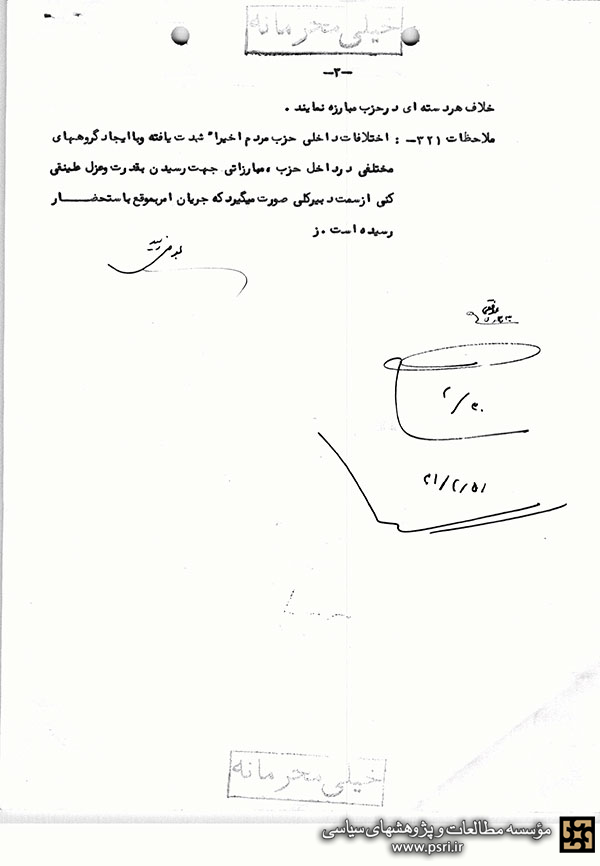 خیلی محرمانه
-۳-
خلاف هر دسته ای در حزب مبارزه نمایند .
ملاحظات ۳۲۱- : اختلافات داخلی حزب مردم اخیرا" شدت یافته و با ایجاد گروههای
مختلفی در داخل حزب ، مبارزاتی جهت رسیدن بقدرت و عزل علینقی
کنی از سمت دبیرکلی صورت میگیرد که جریان امر بموقع باستحضار
رسیده است . ز
۲/۳۰
۳۱/۲/۵۱
خیلی محرمانه
مؤسسه مطالعات و پژوهشهای سیاسی
www.psri.ir